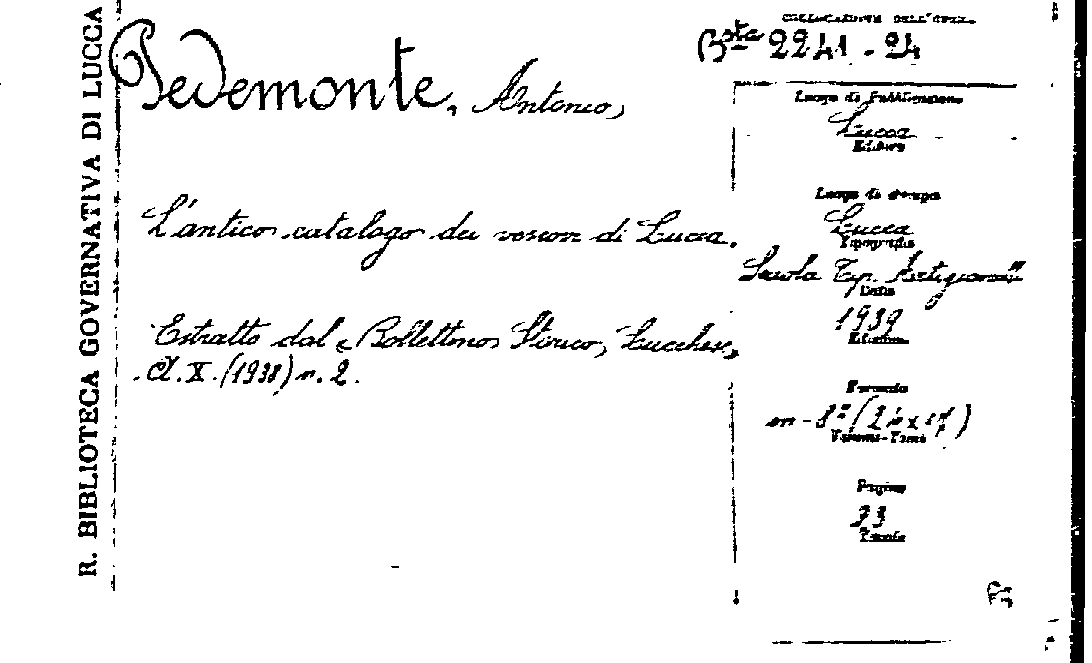 R. BIBLIOTECA GOVERNATIVA DI LUCCA
Pedemonte, Antonio,
L'antico catalogo dei vescovi di Lucca.
Estratto dal « Bollettino Storico Lucchese »
A. X. (1938) n. 2.
COLLOCAZIONE DELL'OPERA
Bsta 2241 - 24
Luogo di Pubblicazione
Lucca
Editore
Luogo di stampa
Lucca
Tipografia
Scuola Tip. Artigianelli
Data
1939
Edizione
Formato
in-8º
Volumi-Tomi
Pagine
Tavole